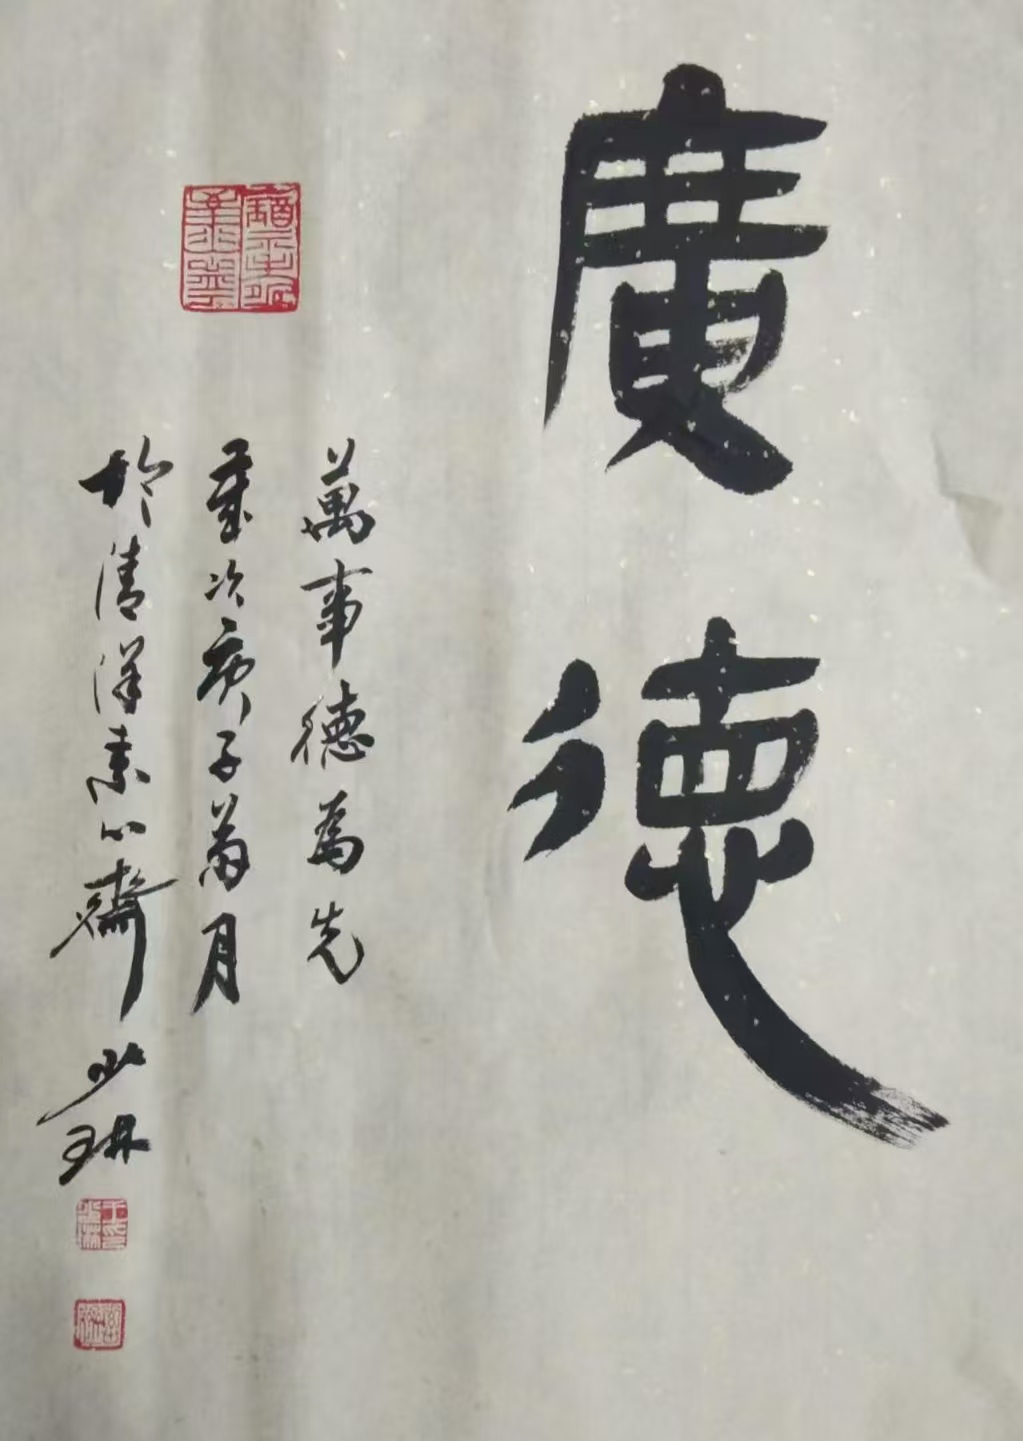 廣德
萬事德為先
歲次庚子菊月
於清漾素心齋 少琳